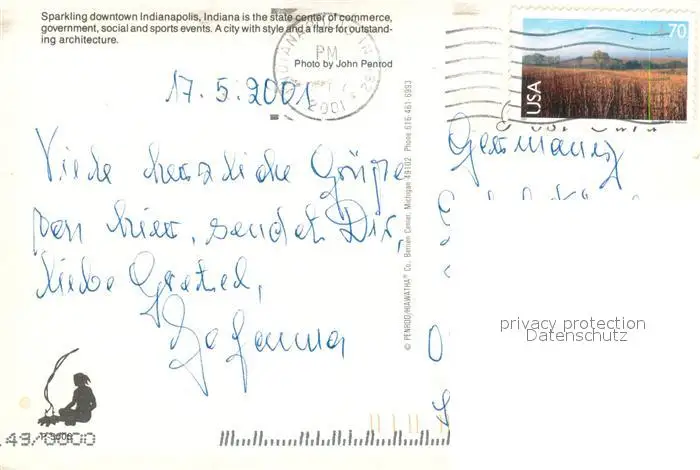 Sparkling downtown Indianapolis, Indiana is the state center of commerce,
government, social and sports events. A city with style and a flare for outstand-
ing architecture.
Photo by John Penrod
PM
2001
70
USA
17.5.2001
Viele herzliche Grüße
von hier, sendet Dir,
liebe Gretel,
Germany
© PENROD/HIAWATHA® Co. Berrien Center, Michigan 49102 Phone 616-461-6993
privacy protection
Datenschutz